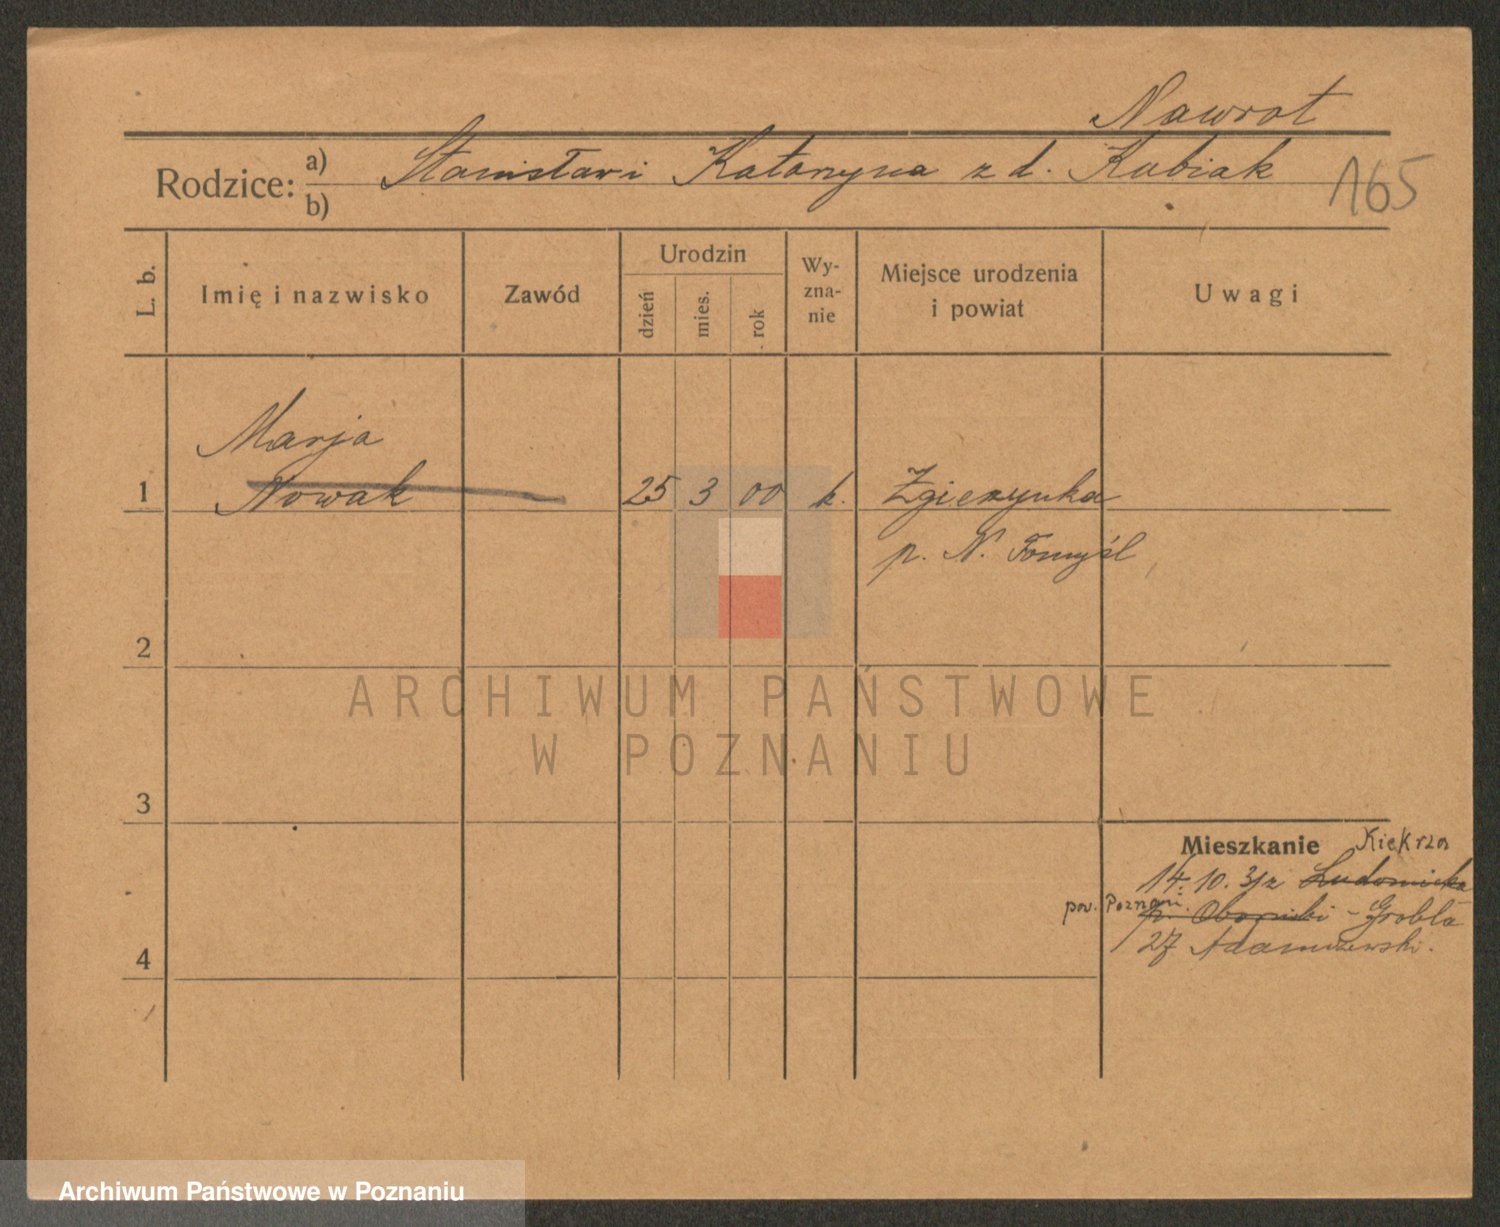 Nawrot
Rodzice: a) Stanisław i Katarzyna z d. Kubiak
b)
165
L. b.
Imię i nazwisko
Zawód
Urodzin
dzień
mies.
rok
Wy-
zna-
nie
Miejsce urodzenia
i powiat
Uwagi
Marja
1 Nowak 25 3 00 k. Zgierzynka
p. N. Tomyśl
2
ARCHIWUM PAŃSTWOWE
W POZNANIU
3
Mieszkanie Kiekrza
14. 10. 31 z Ludomicka
pow. Poznani.
p. Obornicki - Grobla
4
27 Adamczewski.
Archiwum Państwowe w Poznaniu